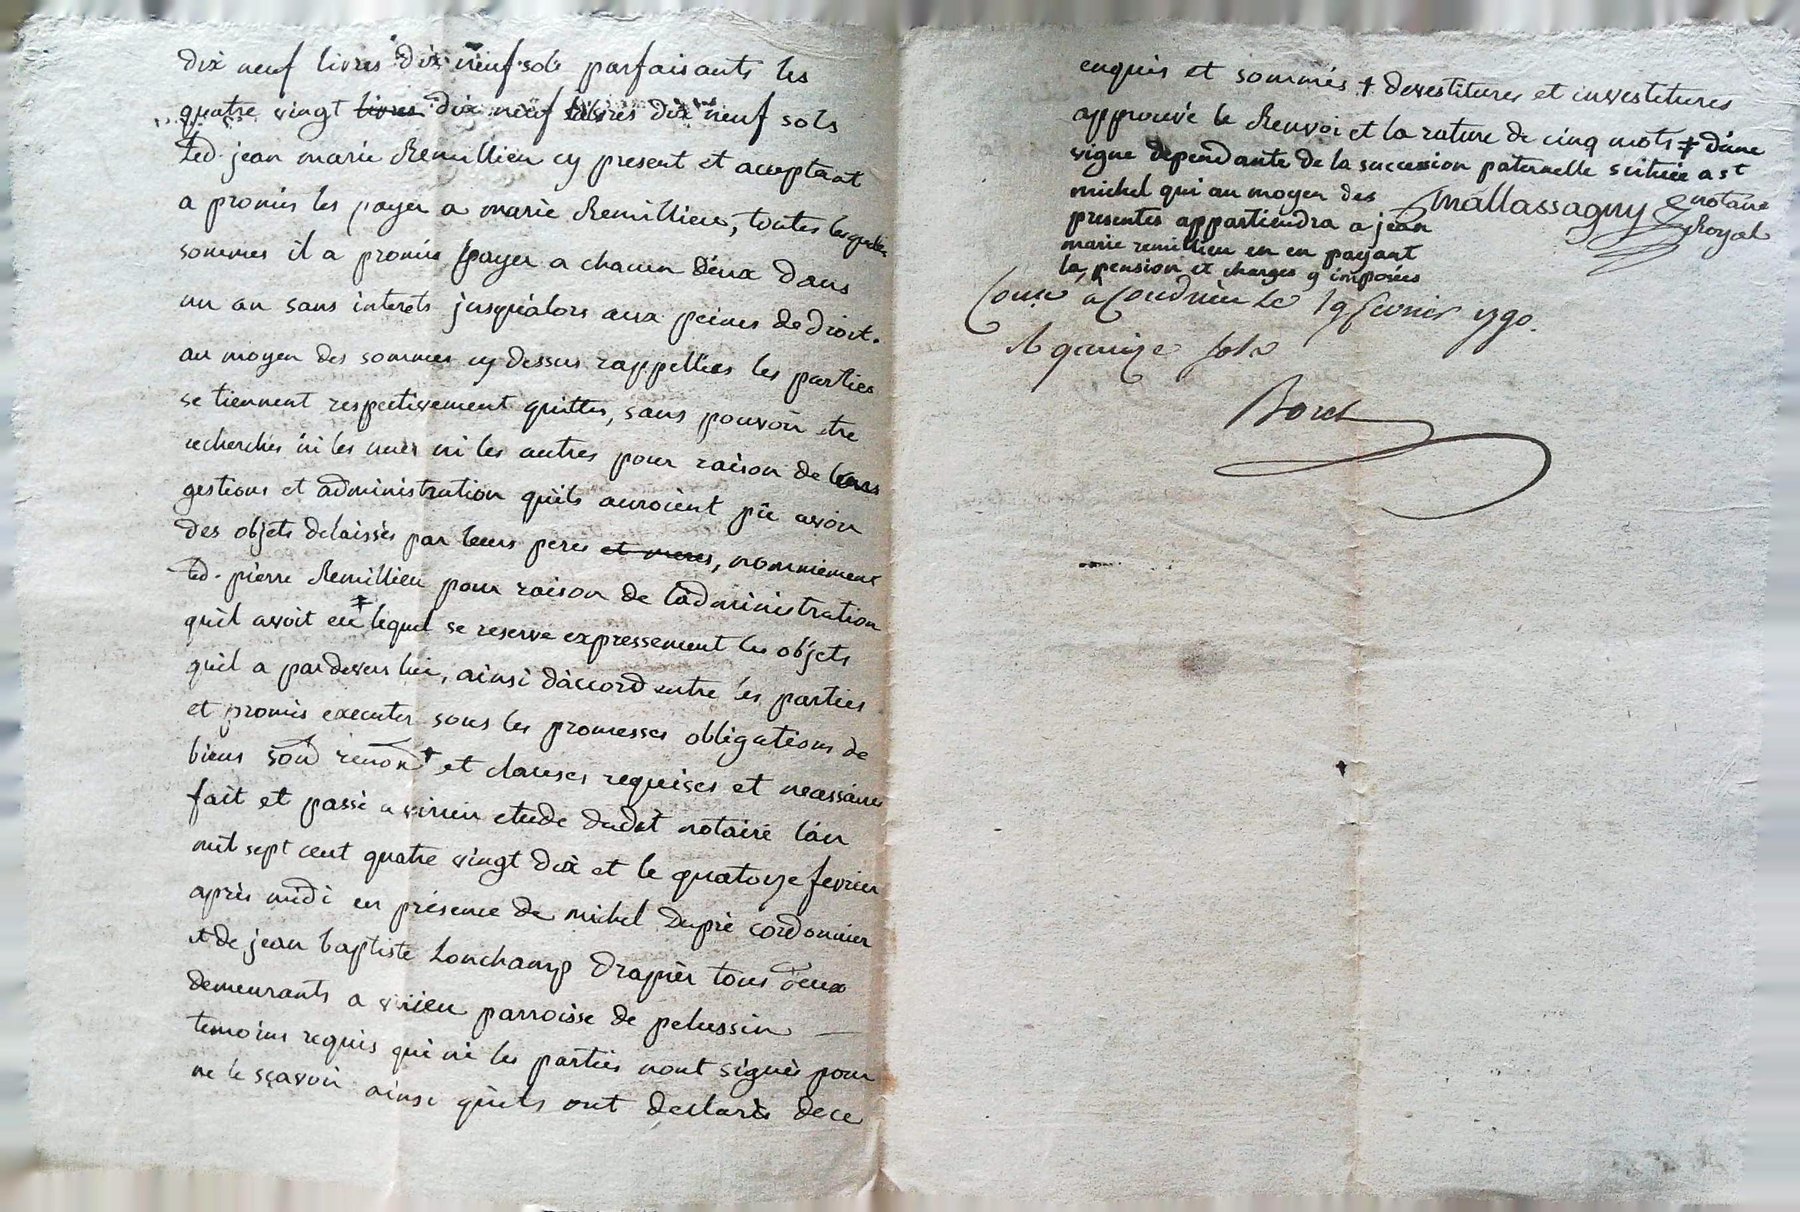 dix neuf livres dix neuf sols parfaisants les
quatre vingt livres dix neuf livres dix neuf sols
led. jean marie Remillieu cy present et acceptant
a promis les payer a marie Remillieu, toutes lesquelles
sommes il a promis payer a chacun deux dans
un an sans interets jusqualors aux peines de droit.
au moyen des sommes cy dessus rappellées les parties
se tiennent respectivement quittes, sans pouvoir etre
recherchés ni les unes ni les autres pour raison de leurs
gestions et administration quils auroient pu avoir
des objets delaissés par leurs peres et meres, nommement
led. pierre Remillieu pour raison de ladministration
quil avoit eu ‡ lequel se reserve expressement les objets
quil a pardevers lui, ainsi daccord entre les parties
et promis executer sous les promesses obligations de
biens soud renon + et clauses requises et necessaires
fait et passé a virieu etude dudit notaire lan
mil sept cent quatre vingt dix et le quatorze fevrier
après midi en presence de michel Dupré cordonnier
et de jean baptiste Lonchamp drapier tous deux
demeurants a virieu parroisse de pelussin
temoins requis qui ni les parties nont signés pour
ne le sçavoir ainsi quils ont declarés de ce
enquis et sommés + devestitures et investitures
approuvé le Renvoi et la rature de cinq mots ‡ dune
vigne dependante de la succession paternelle scituée a st
michel qui au moyen des
presentes appartiendra a jean
marie remillieu en en payant
la pension et charges y imposées
Mallassagny notaire
Royal
Conse à Condrieu le 19 fevrier 1790.
R quinze sols
Boret